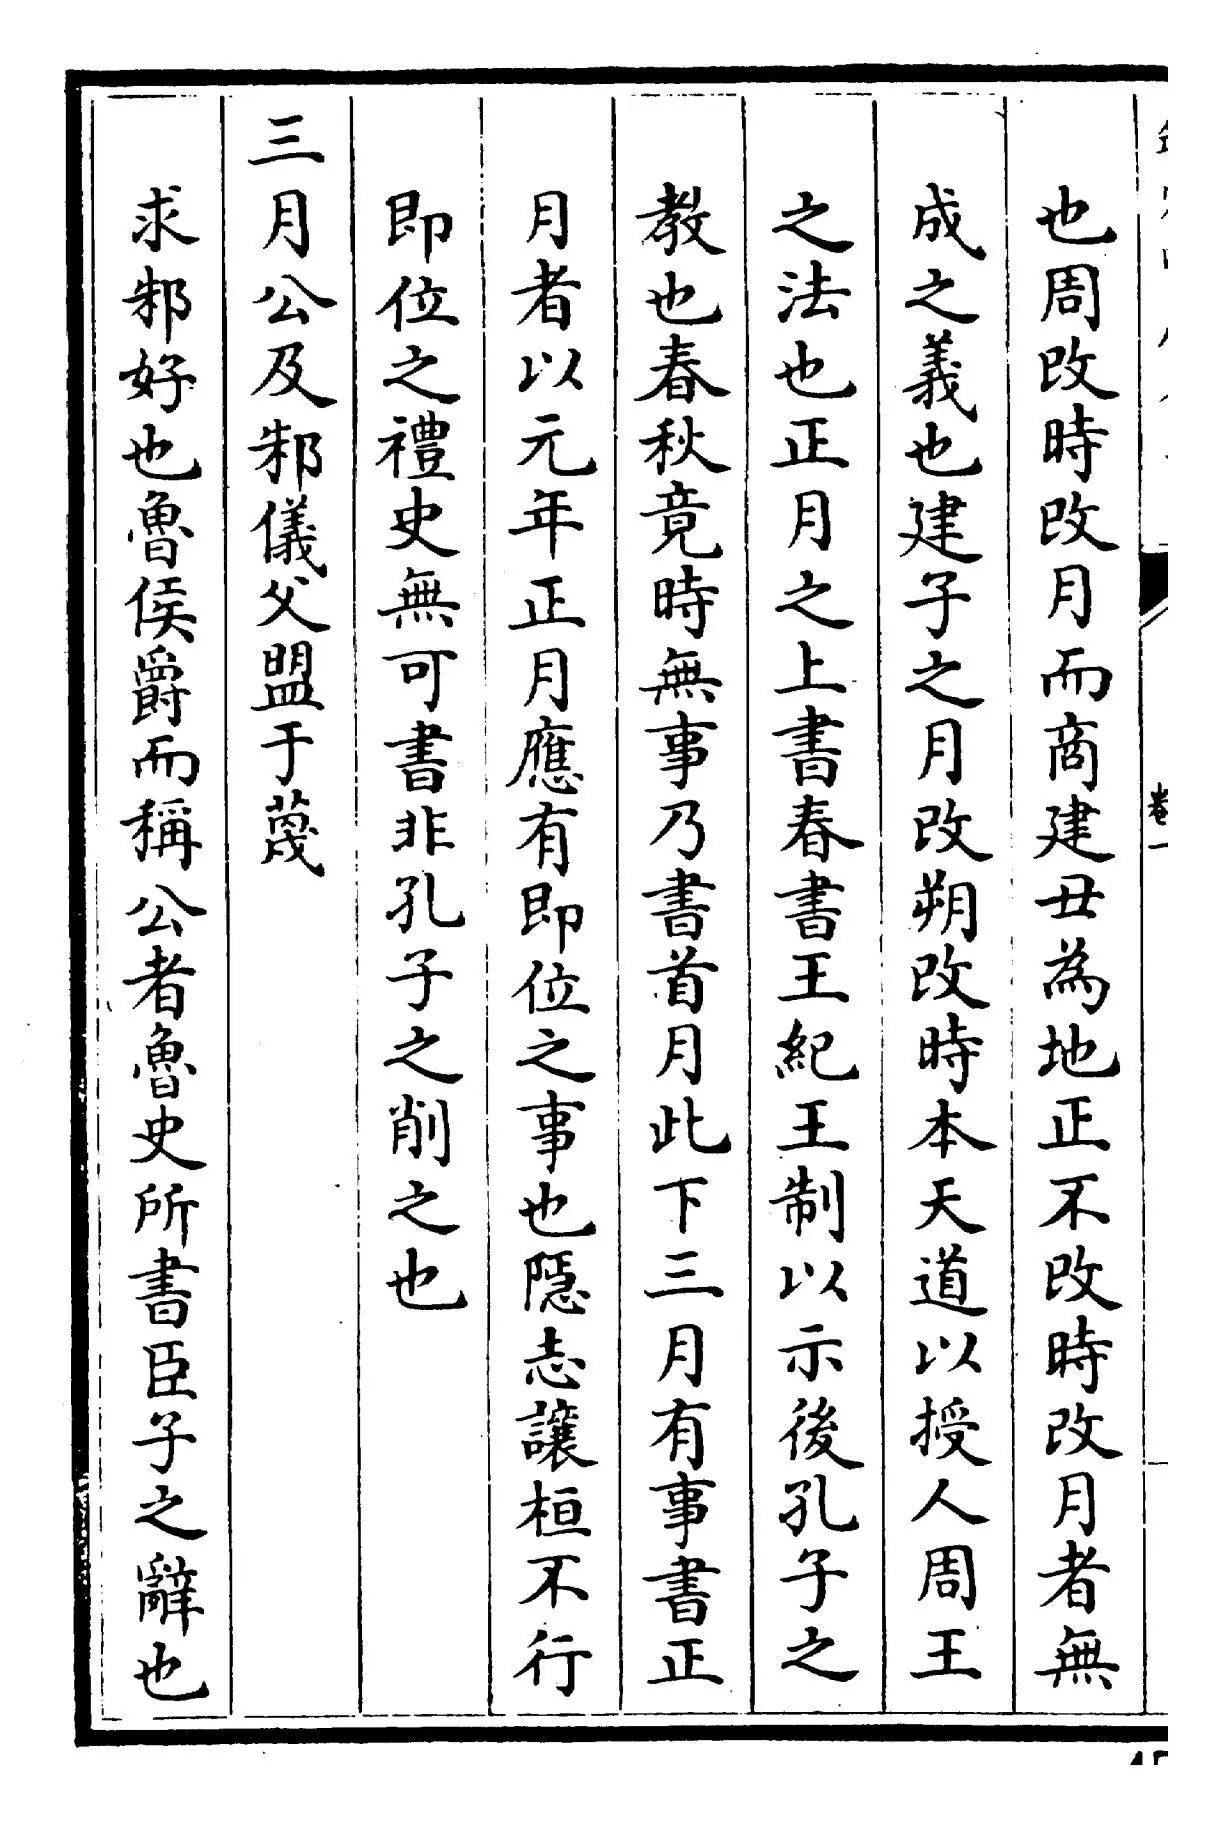 卷一
也周改時改月而商建丑為地正不改時改月者無
成之義也建子之月改朔改時本天道以授人周王
之法也正月之上書春書王紀王制以示後孔子之
教也春秋竟時無事乃書首月此下三月有事書正
月者以元年正月應有即位之事也隱志讓桓不行
即位之禮史無可書非孔子之削之也
三月公及邾儀父盟于蔑
求邾好也魯侯爵而稱公者魯史所書臣子之辭也